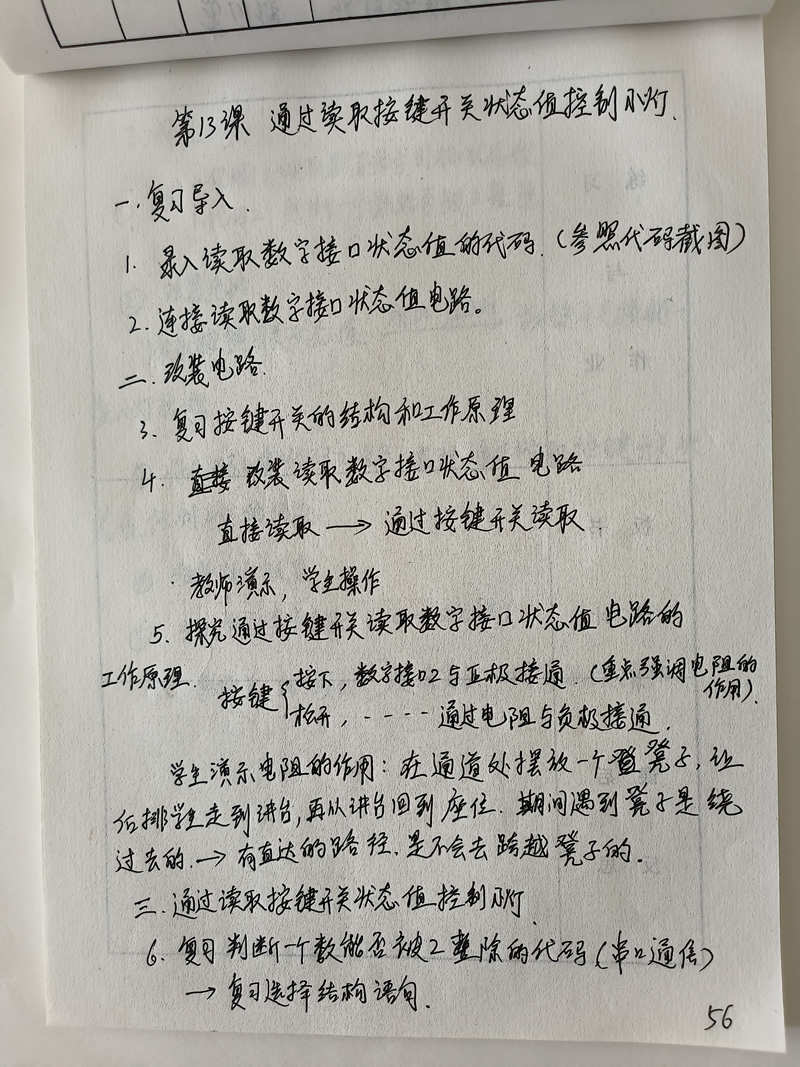 第13课 通过读取按键开关状态值控制小灯.
一.复习导入.
1. 录入读取数字接口状态值的代码.(参照代码截图)
2. 连接读取数字接口状态值电路。
二.改装电路.
3. 复习按键开关的结构和工作原理
4. 改装读取数字接口状态值 电路
直接读取 → 通过按键开关读取
·教师演示, 学生操作
5. 探究通过按键开关读取数字接口状态值 电路的
工作原理. 按键{按下, 数字接口2与正极接通.(重点强调电阻的作用).
松开, ---- 通过电阻与负极接通.
学生演示电阻的作用: 在通道处摆放一个凳子, 让
后排学生走到讲台, 再从讲台回到座位. 期间遇到凳子是绕
过去的. → 有直达的路径. 是不会去跨越凳子的.
三.通过读取按键开关状态值控制小灯
6. 复习判断一个数能否被2整除的代码(串口通信)
→ 复习选择结构语句.
56
练 习
与
作 业